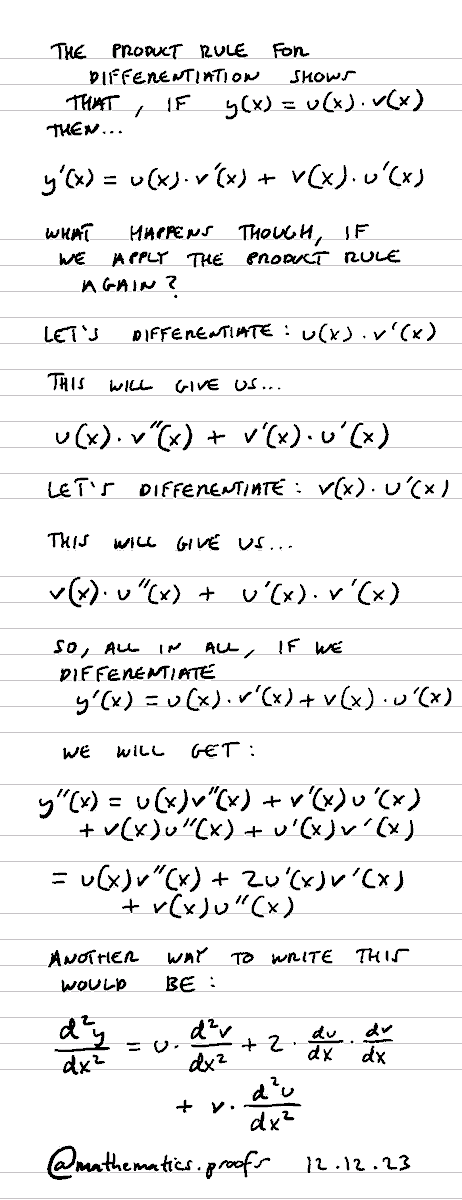 THE PRODUCT RULE FOR
DIFFERENTIATION SHOWS
THAT, IF y(x) = u(x).v(x)
THEN...
y'(x) = u(x).v'(x) + v(x).u'(x)
WHAT HAPPENS THOUGH, IF
WE APPLY THE PRODUCT RULE
AGAIN?
LET'S DIFFERENTIATE: u(x).v'(x)
THIS WILL GIVE US...
u(x).v''(x) + v'(x).u'(x)
LET'S DIFFERENTIATE: v(x).u'(x)
THIS WILL GIVE US...
v(x).u''(x) + u'(x).v'(x)
SO, ALL IN ALL, IF WE
DIFFERENTIATE
y'(x) = u(x).v'(x) + v(x).u'(x)
WE WILL GET:
y''(x) = u(x)v''(x) + v'(x)u'(x)
+ v(x)u''(x) + u'(x)v'(x)
= u(x)v''(x) + 2u'(x)v'(x)
+ v(x)u''(x)
ANOTHER WAY TO WRITE THIS
WOULD BE:
d²y/dx² = u. d²v/dx² + 2. du/dx . dv/dx
+ v. d²u/dx²
@mathematics.proofs 12.12.23